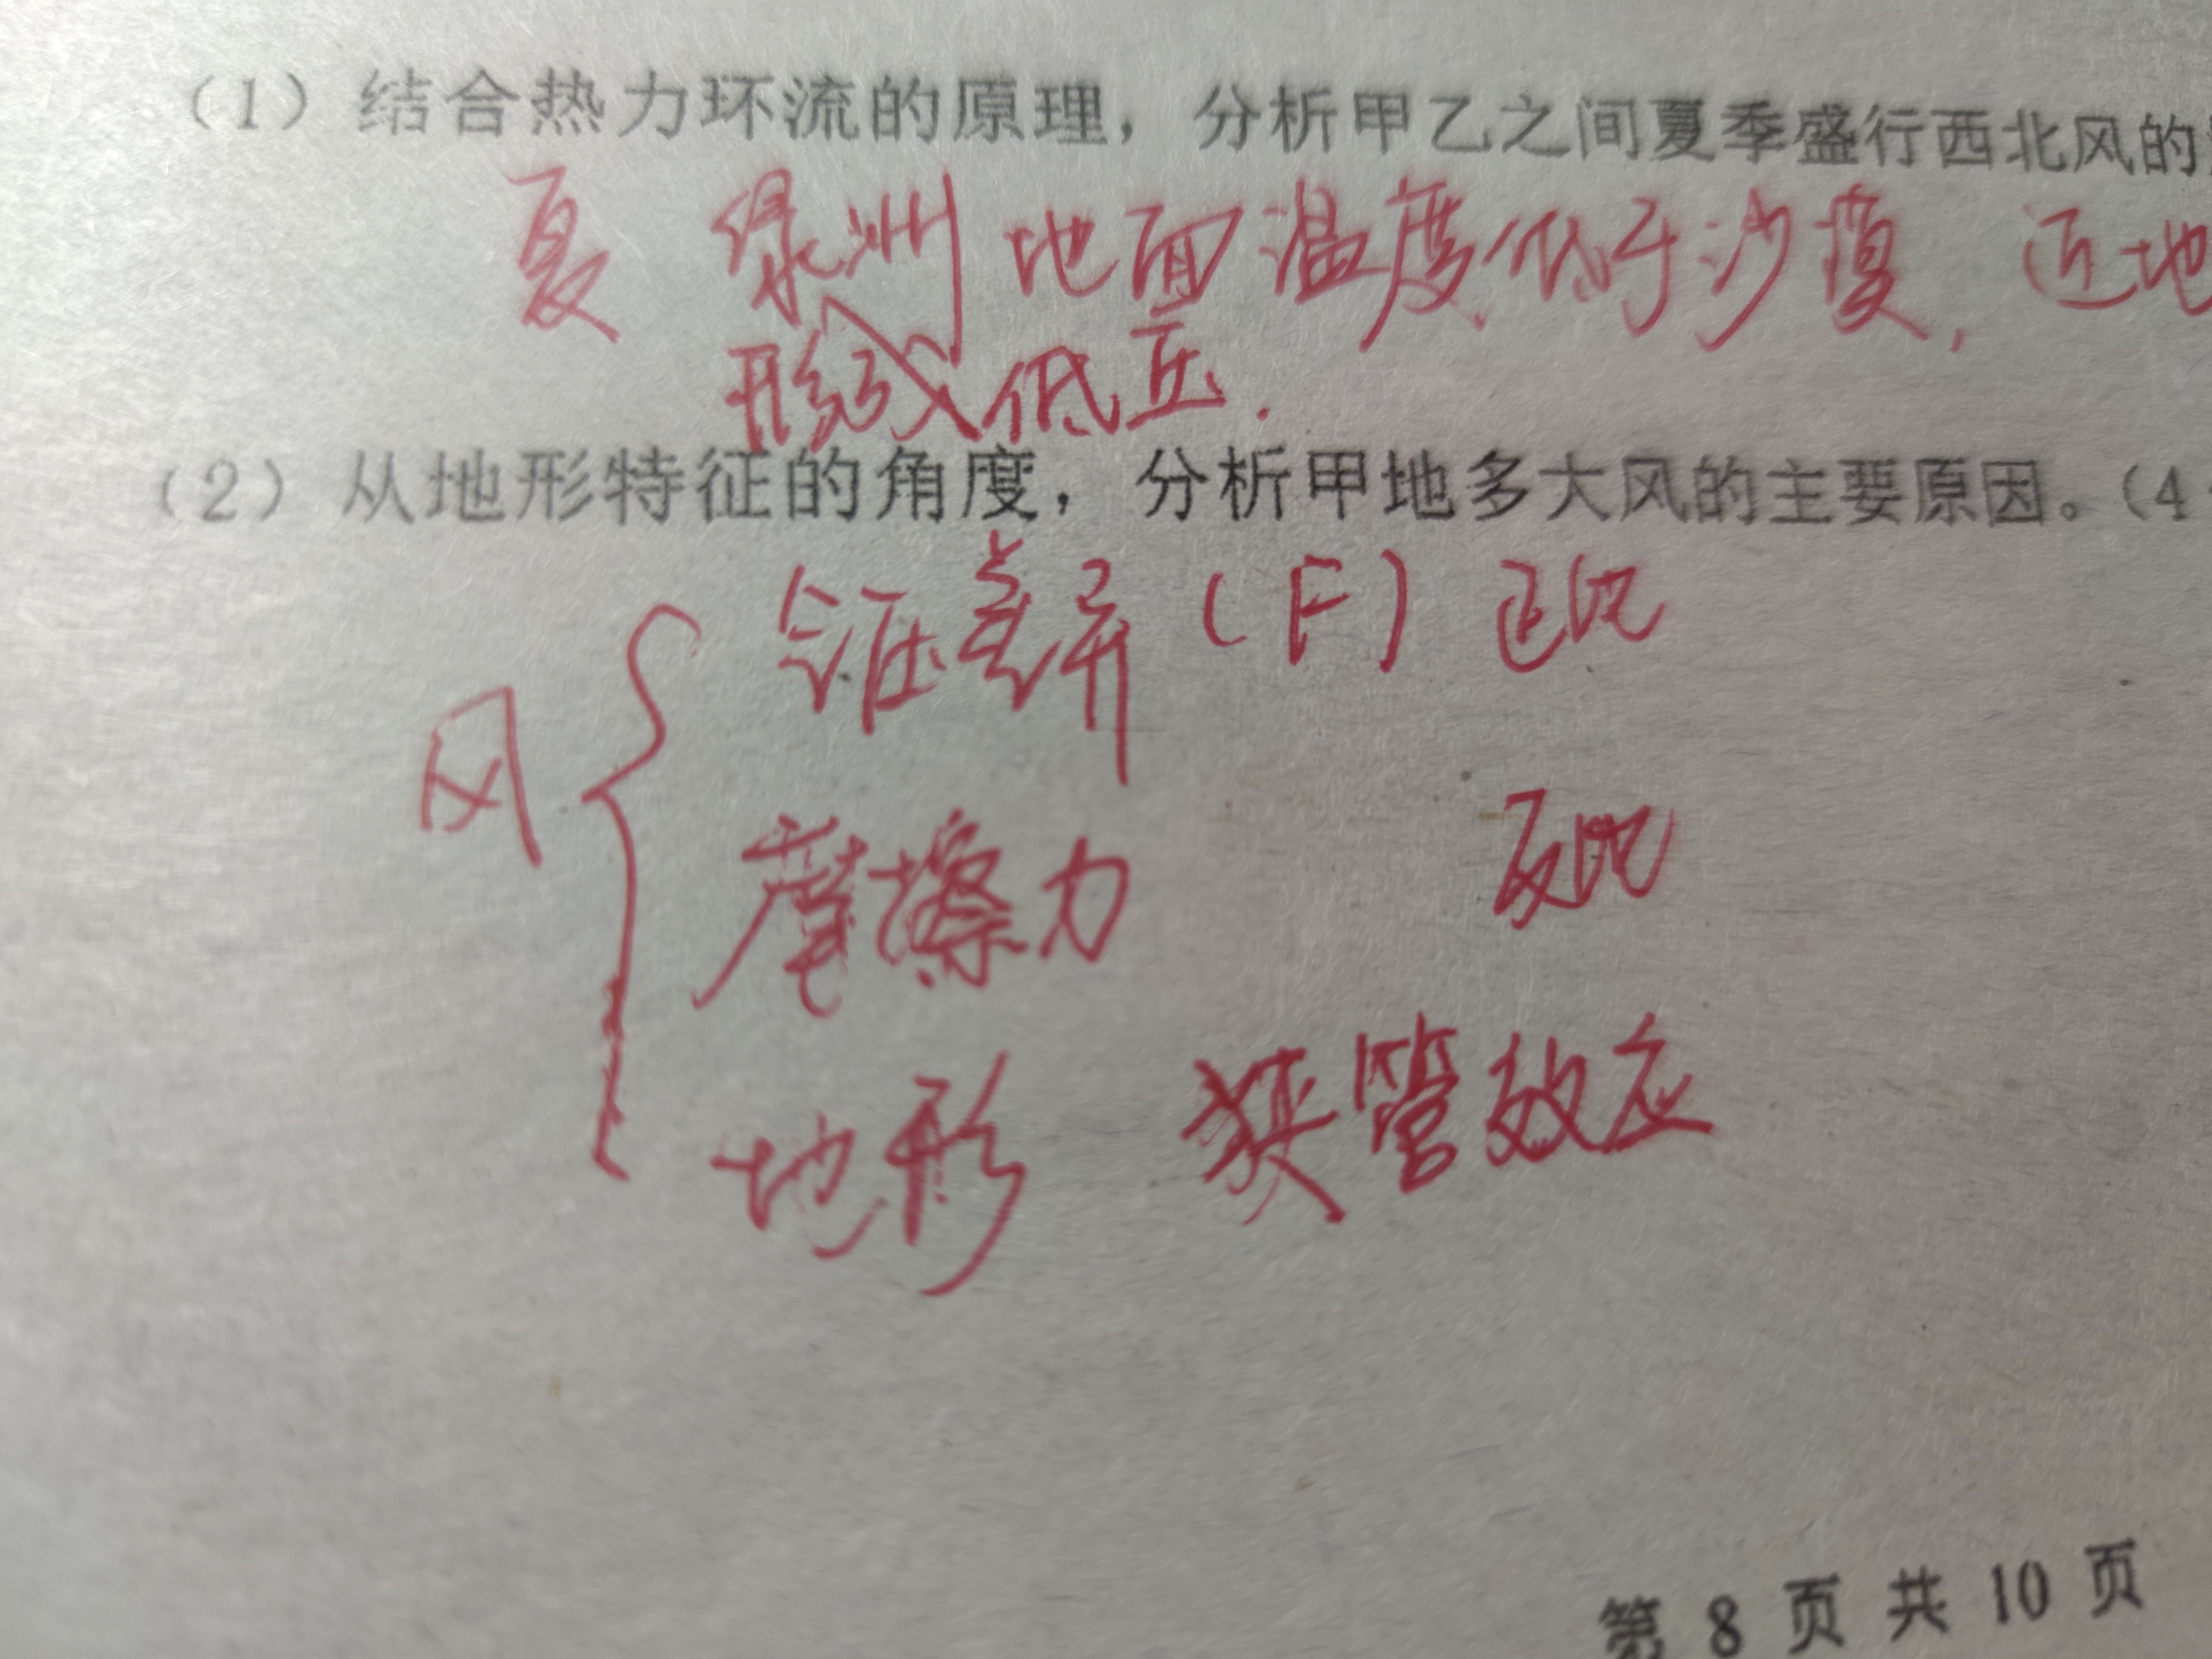 （1）结合热力环流的原理，分析甲乙之间夏季盛行西北风的
夏 绿洲地面温度低于沙漠，近地
形成低压.
（2）从地形特征的角度，分析甲地多大风的主要原因。（4
气压差异（F）正比
风
摩擦力 反比
地形 狭管效应
第 8 页 共 10 页